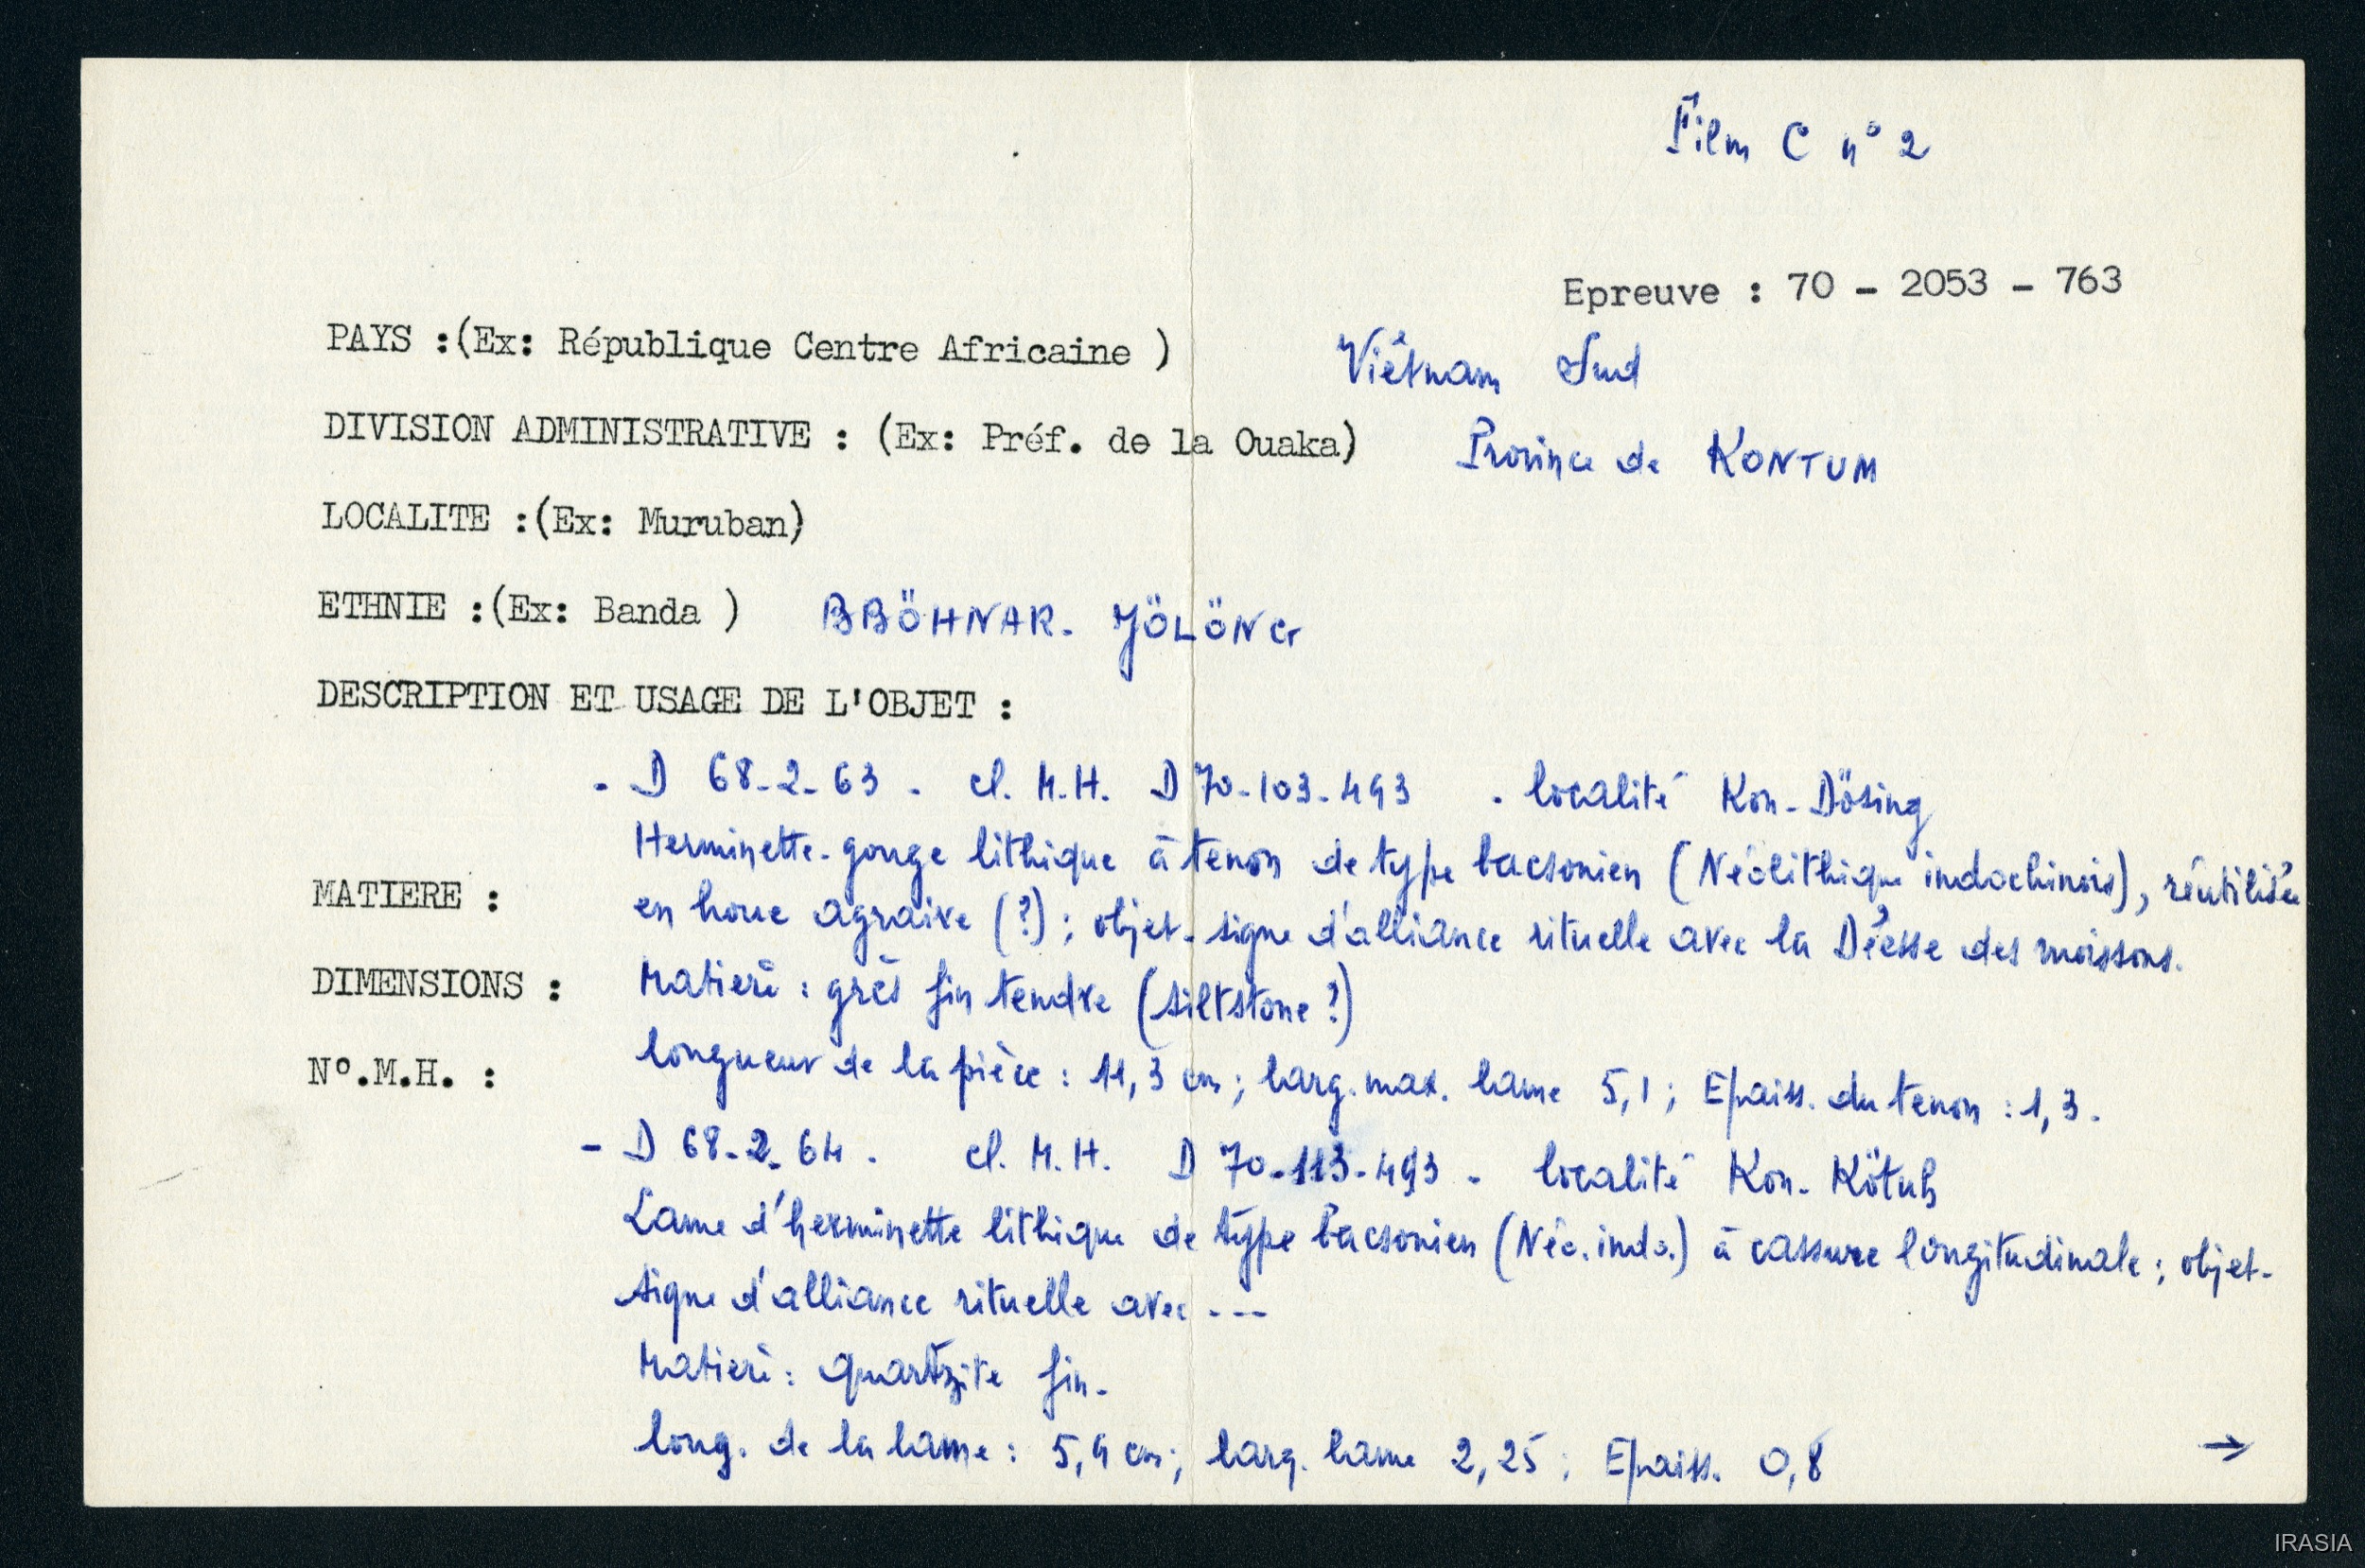 Film C n° 2
Epreuve : 70 - 2053 - 763
PAYS :(Ex: République Centre Africaine ) Viêtnam Sud
DIVISION ADMINISTRATIVE : (Ex: Préf. de la Ouaka) Province de KONTUM
LOCALITE :(Ex: Muruban)
ETHNIE :(Ex: Banda ) BBÖHNAR- JÖLÖNG
DESCRIPTION ET USAGE DE L'OBJET :
- D 68-2-63 - cl. M.H. D 70-103-493 - localité Kon-Dösing
Herminette-gouge lithique à tenon de type bacsonien (Néolithique indochinois), réutilisée
MATIERE : en houe agraire (?) ; objet-signe d'alliance rituelle avec la Déesse des moissons.
DIMENSIONS : Matière : grès fin tendre (siltstone ?)
N°.M.H. : longueur de la pièce : 11,3 cm ; larg. max. lame 5,1 ; Epaiss. du tenon : 1,3.
- D 68-2-64 - cl. M.H. D 70-113-493 - localité Kon-Kötuh
Lame d'herminette lithique de type bacsonien (Néo. indo.) à cassure longitudinale ; objet-
signe d'alliance rituelle avec ---
Matière : quartzite fin.
long. de la lame : 5,9 cm ; larg. lame 2,25 ; Epaiss. 0,8 →
IRASIA